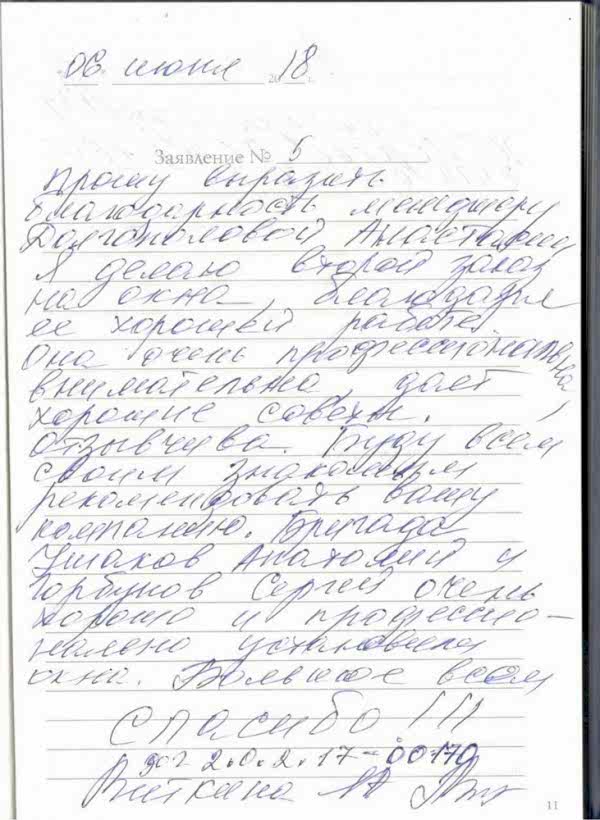 06 июня 2018 г.
Заявление № 5
Прошу выразить
благодарность менеджеру
Долгополовой Анастасии
Я делаю второй заказ
на окна, благодаря
ее хорошей работе.
Она очень профессиональна,
внимательна, дает
хорошие советы,
отзывчива. Буду всем
своим знакомым
рекомендовать вашу
компанию. Бригада
Ушаков Анатолий и
Горбунов Сергей очень
хорошо и профессио-
нально установили
окна. Большое всем
спасибо!!!
дог 2.0.2.17-00170
11